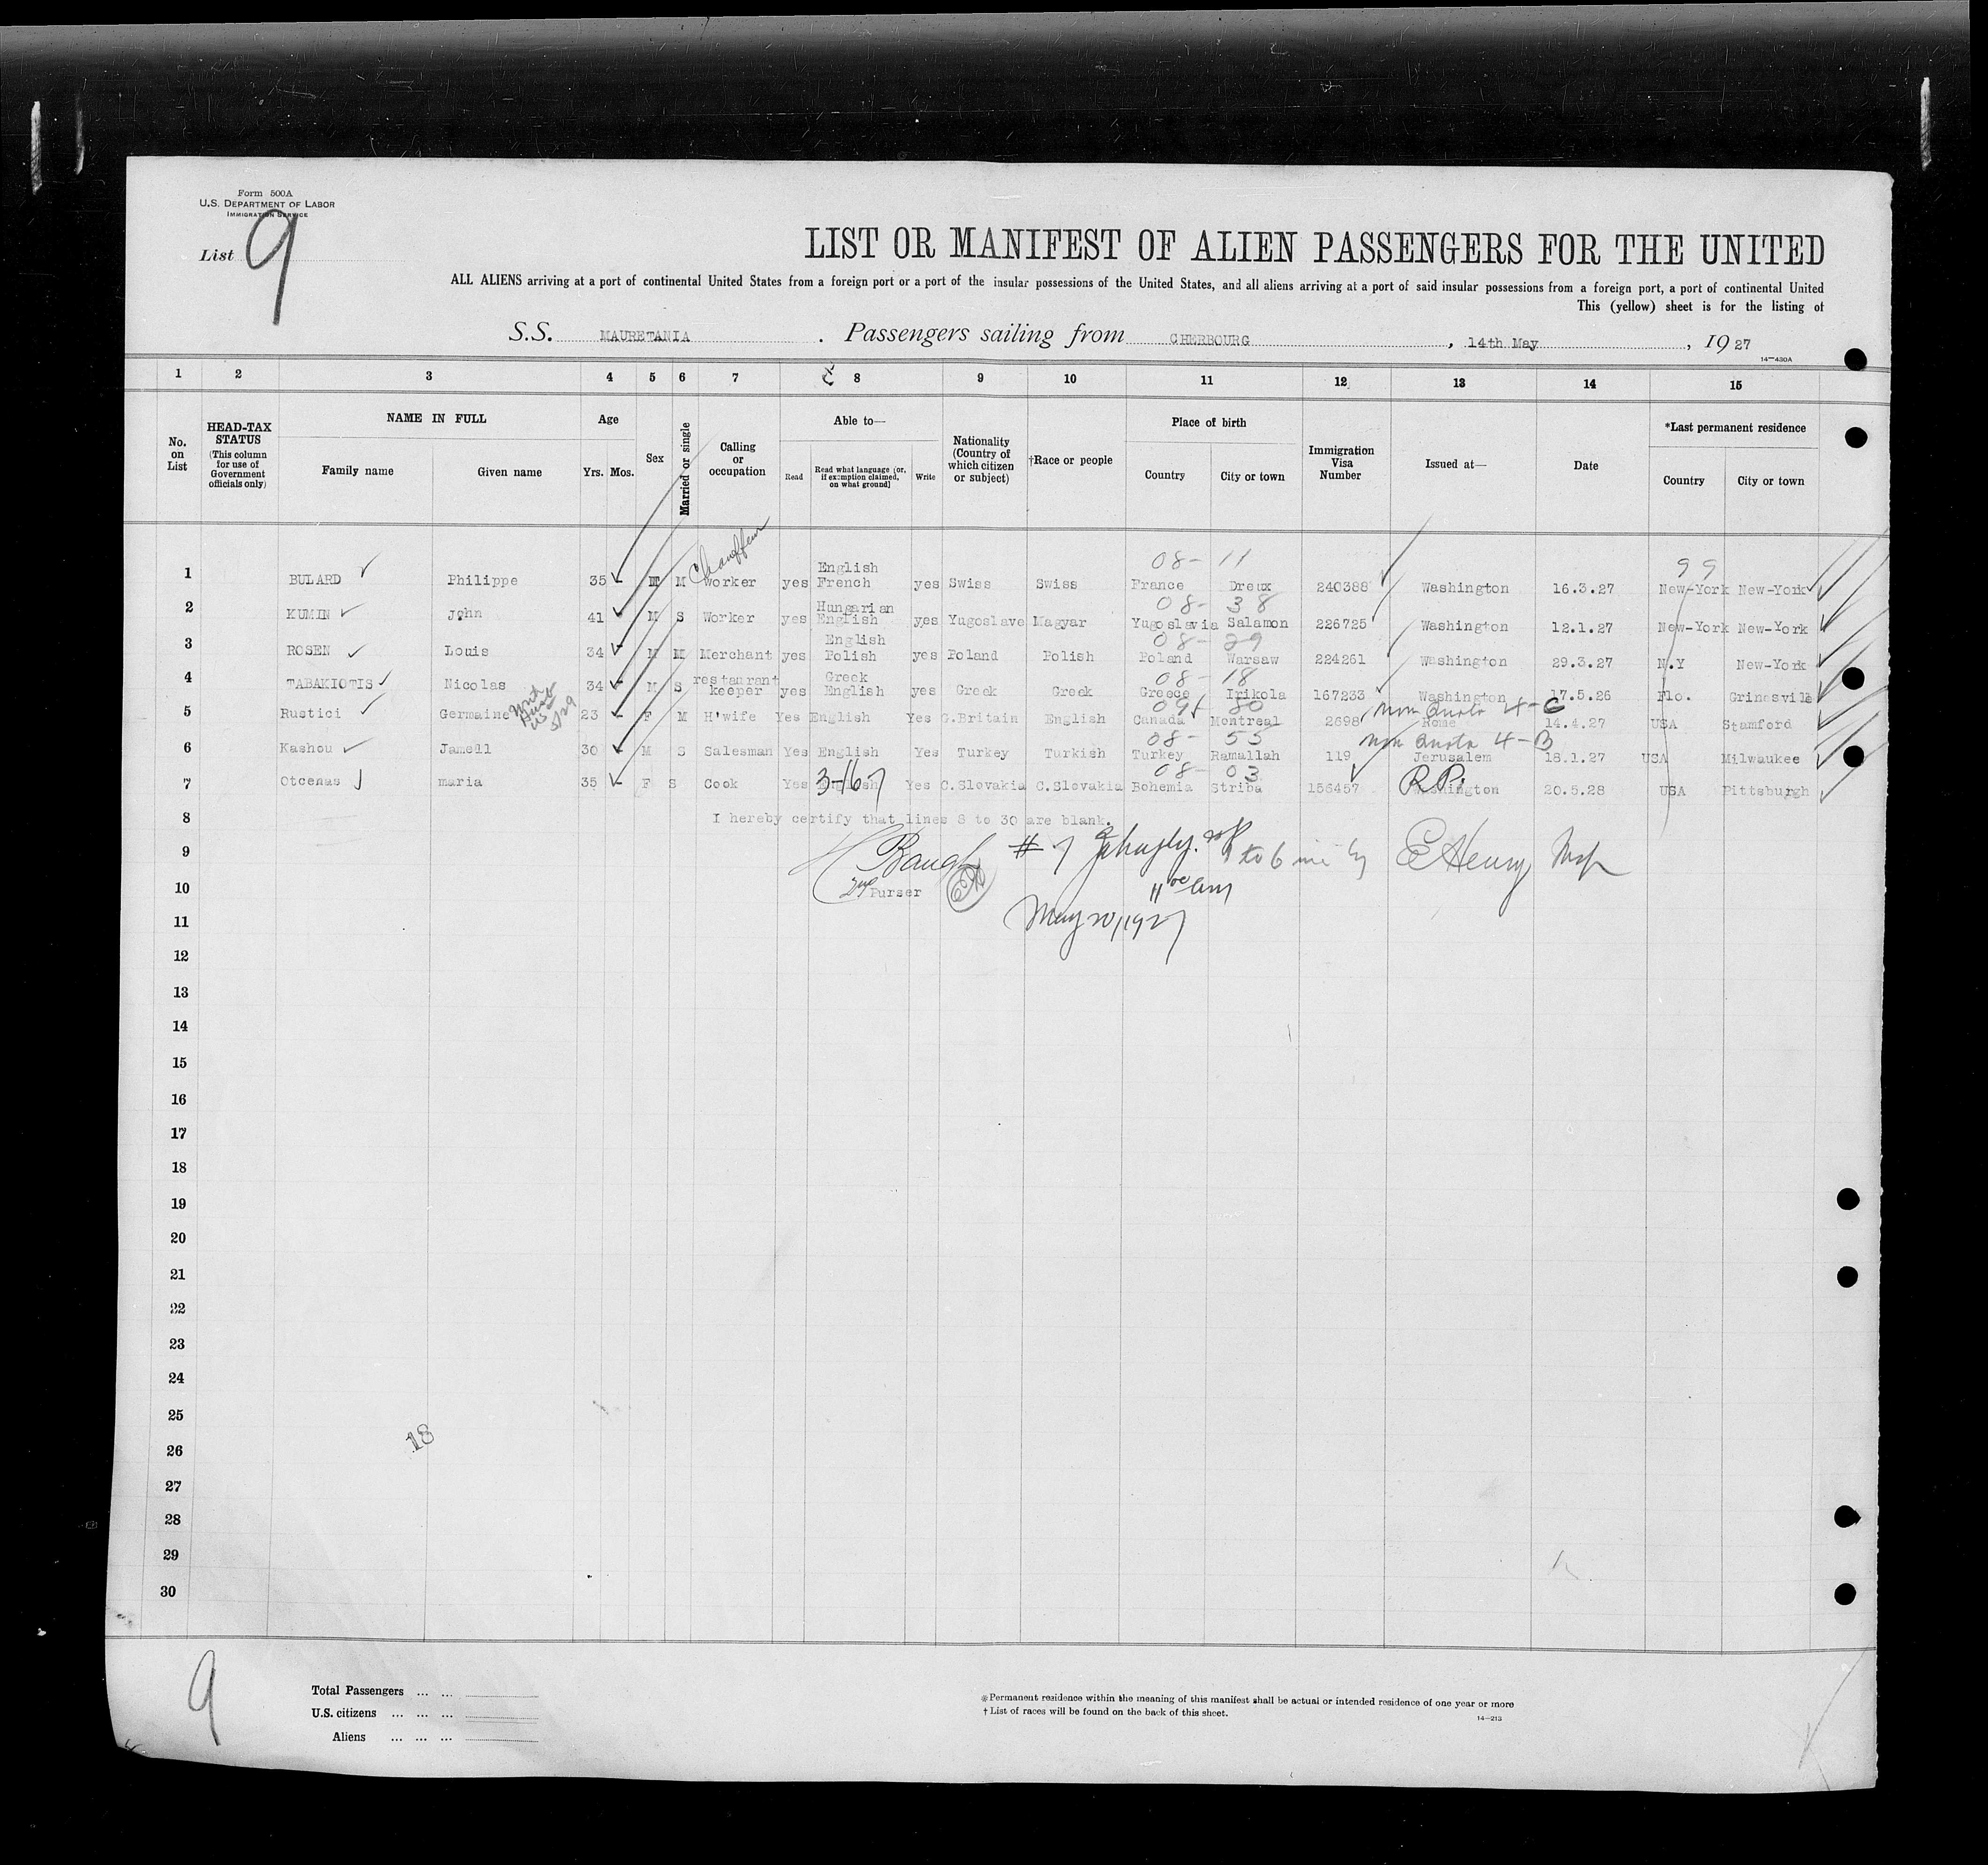 Form 500A
U.S. DEPARTMENT OF LABOR
IMMIGRATION SERVICE
List 9
LIST OR MANIFEST OF ALIEN PASSENGERS FOR THE UNITED
ALL ALIENS arriving at a port of continental United States from a foreign port or a port of the insular possessions of the United States, and all aliens arriving at a port of said insular possessions from a foreign port, a port of continental United
This (yellow) sheet is for the listing of
S.S. MAURETANIA . Passengers sailing from CHERBOURG , 14th May , 19 27
14—430A
1 2 3 4 5 6 7 8 9 10 11 12 13 14 15
No. on List
HEAD-TAX STATUS (This column for use of Government officials only)
NAME IN FULL
Family name Given name
Age
Yrs. Mos.
Sex
Married or single
Calling or occupation
Able to—
Read Read what language [or, if exemption claimed, on what ground] Write
Nationality (Country of which citizen or subject)
†Race or people
Place of birth
Country City or town
Immigration Visa Number
Issued at—
Date
*Last permanent residence
Country City or town
Chauffeur 08- 11 99
1 BULARD Philippe 35 M M Worker yes English French yes Swiss Swiss France Dreux 240388 Washington 16.3.27 New-York New-York
08- 38
2 KUMIN John 41 M S Worker yes Hungarian English yes Yugoslave Magyar Yugoslavia Salamon 226725 Washington 12.1.27 New-York New-York
08- 29
3 ROSEN Louis 34 M M Merchant yes English Polish yes Poland Polish Poland Warsaw 224261 Washington 29.3.27 N.Y New-York
08- 18
4 TABAKIOTIS Nicolas 34 S restaurant keeper yes Greek English yes Greek Greek Greece Irikola 167233 Washington 17.5.26 Flo. Grinesville
80 non Quota 4-C
5 Rustici Germaine 23 F M H'wife Yes English Yes G.Britain English Canada Montreal 2698 Rome 14.4.27 USA Stamford
08- 55 non Quota 4-B
6 Kashou Jamell 30 M S Salesman Yes English Yes Turkey Turkish Turkey Ramallah 119 Jerusalem 18.1.27 USA Milwaukee
08- 03
7 Otcenas maria 35 F S Cook Yes English 3-167 Yes C.Slovakia C.Slovakia Bohemia Striba 156457 Washington R.P. 20.5.28 USA Pittsburgh
8 I hereby certify that lines 8 to 30 are blank.
9 # 7 to 6 E Henry
10 2nd Purser
11 May 20/1927
12
13
14
15
16
17
18
19
20
21
22
23
24
25
18
26
27
28
29
30
9
Total Passengers ... ...
U.S. citizens ... ... ...
Aliens ... ... ...
*Permanent residence within the meaning of this manifest shall be actual or intended residence of one year or more
† List of races will be found on the back of this sheet.
14—213